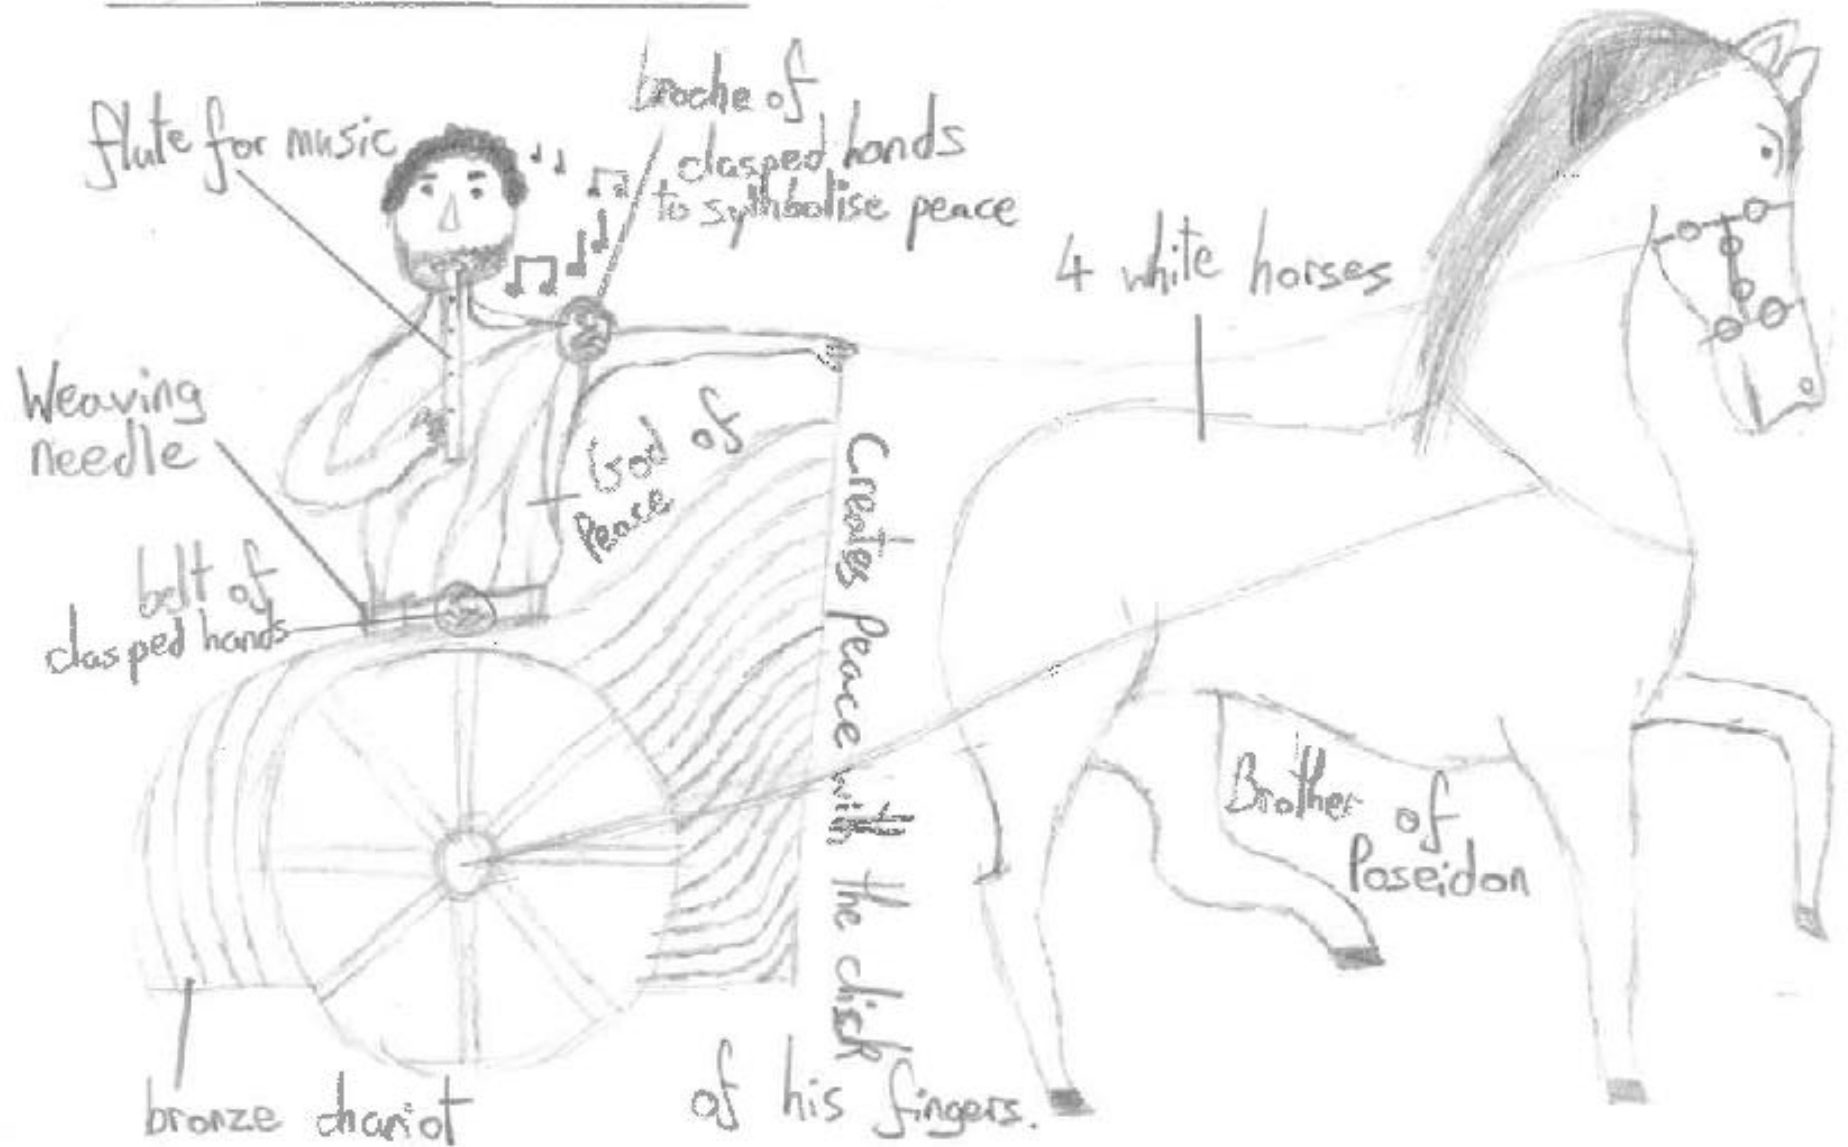 flute for music
broche of
clasped hands
to symbolise peace
4 white horses
Weaving
needle
God of
Peace
belt of
clasped hands
Creates Peace with the click
of his fingers.
Brother of
Poseidon
bronze chariot